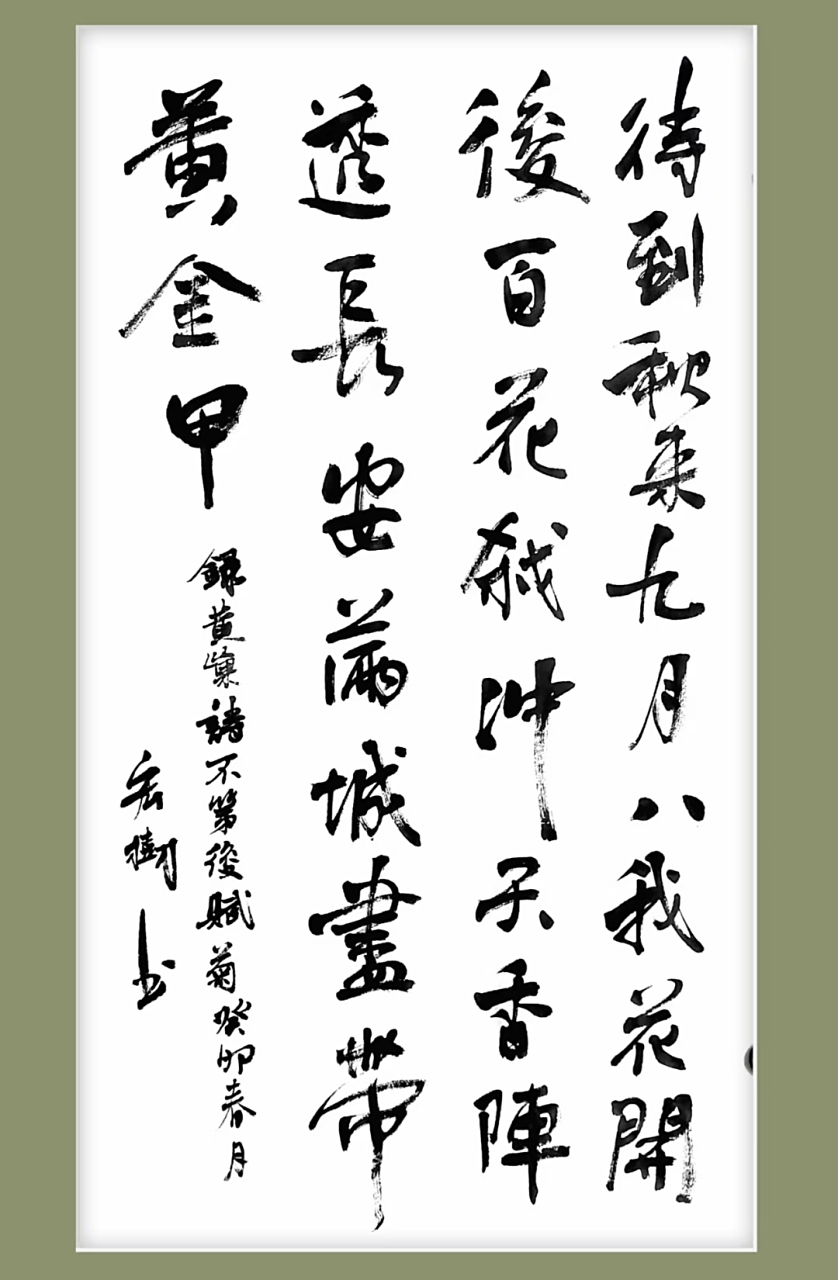 待到秋来九月八我花開
後百花殺沖天香陣
透長安滿城盡帶
黄金甲
錄黄巢詩不第後賦菊癸卯春月
宏樹书